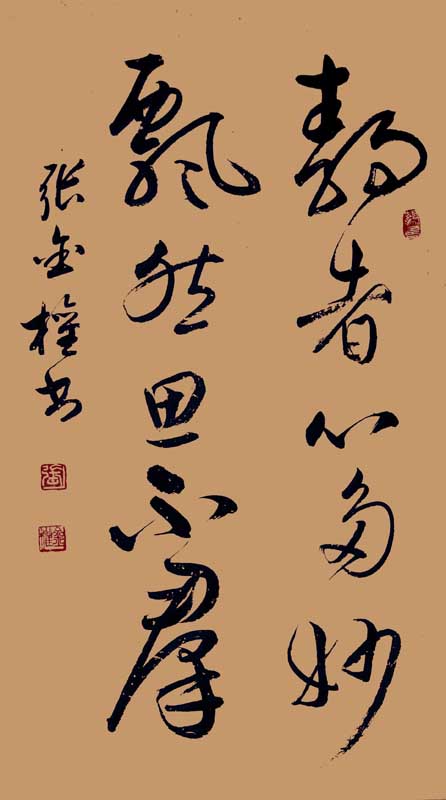 静者心多妙
飘然思不群
张金权书